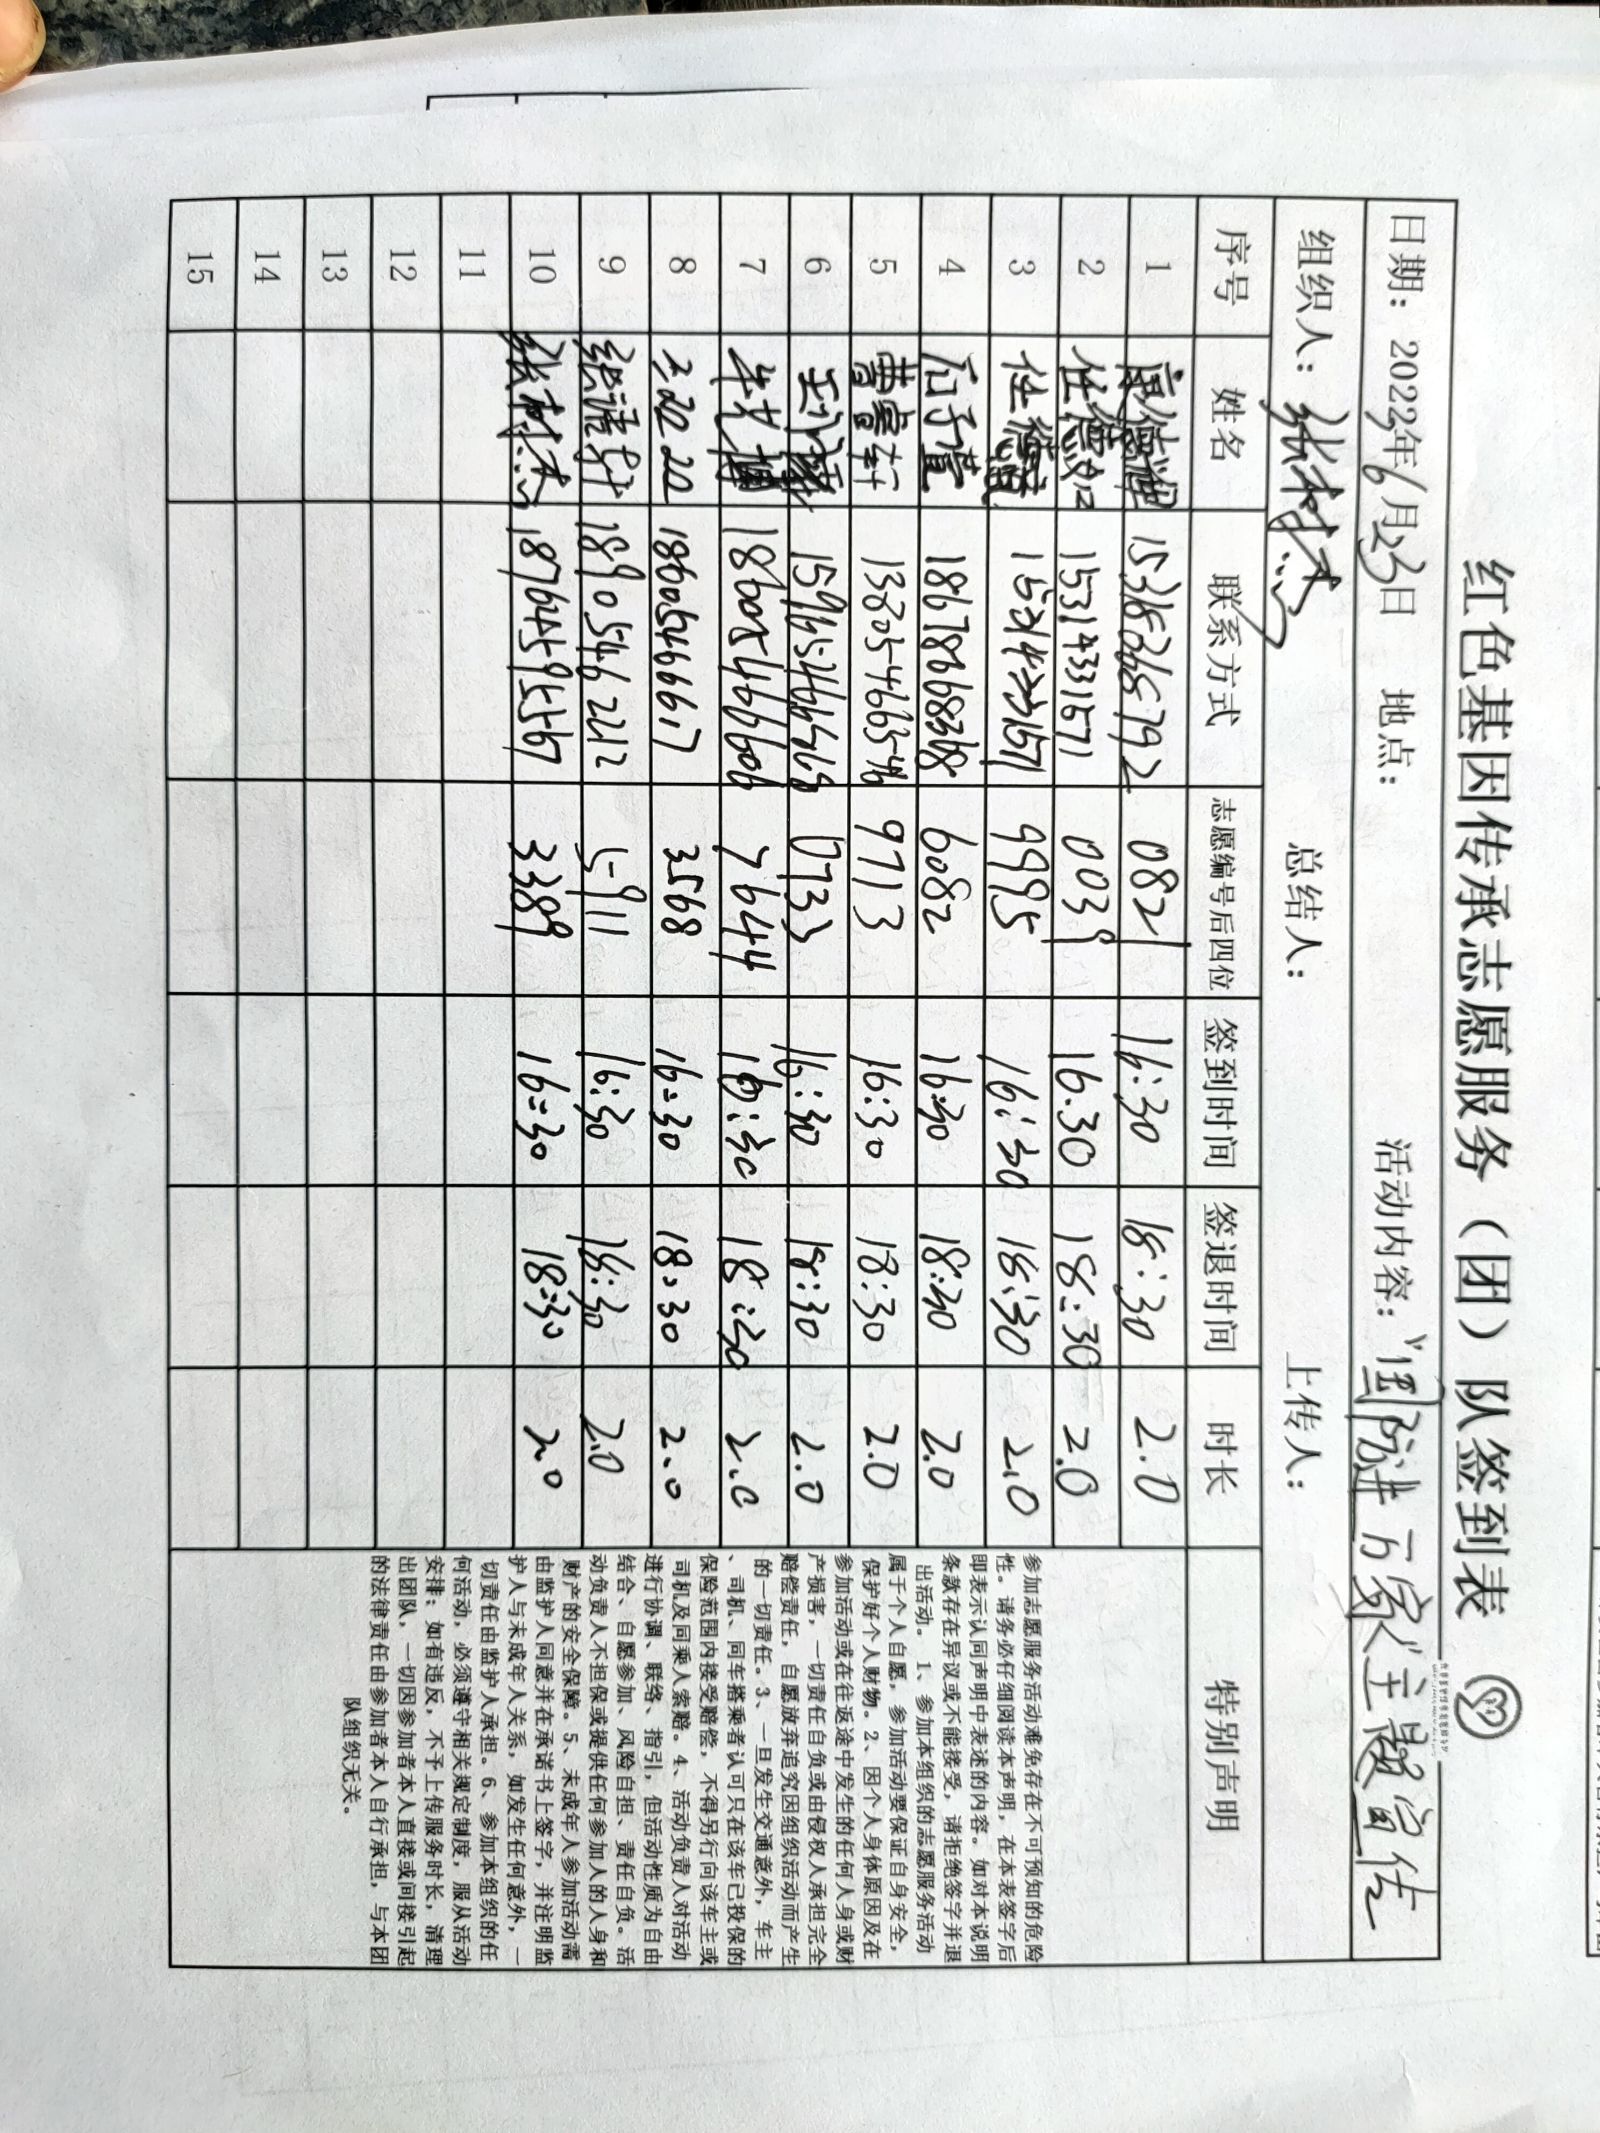 红色基因传承志愿服务（团）队签到表
日期：2023年6月23日 地点： 活动内容："国防进万家"主题宣传
组织人：张树杰 总结人： 上传人：
序号 姓名 联系方式 志愿编号后四位 签到时间 签退时间 时长 特别声明
1 0821 16:30 18:30 2.0
2 任德如 15314331671 0039 16.30 18:30 2.0
3 任德 9995 16:30 18:30 2.0
4 石子萱 18678668368 6082 16:30 18:30 2.0
5 曹睿轩 13805466354 9713 16:30 18:30 2.0
6 0733 16:30 18:30 2.0
7 18605466606 7644 16:30 18:30 2.0
8 18605466617 3568 16:30 18:30 2.0
9 18905462212 5911 16:30 18:30 2.0
10 张树杰 18764595567 3389 16:30 18:30 2.0
11
12
13
14
15
参加志愿服务活动难免存在不可预知的危险
性。请务必仔细阅读本声明，在本表签字后
即表示认同声明中表述的内容。如对本说明
条款存在异议或不能接受，请拒绝签字并退
出活动。 1、参加本组织的志愿服务活动
属于个人自愿，参加活动要保证自身安全，
保护好个人财物。2、因个人身体原因及在
参加活动或在往返途中发生的任何人身或财
产损害，一切责任自负或由侵权人承担完全
赔偿责任，自愿放弃追究因组织活动而产生
的一切责任。3、一旦发生交通意外，车主
、司机、同车搭乘者认可只在该车已投保的
保险范围内接受赔偿，不得另行向该车主或
司机及同乘人索赔。4、活动负责人对活动
进行协调、联络、指引，但活动性质为自由
结合、自愿参加、风险自担、责任自负。活
动负责人不担保或提供任何参加人的人身和
财产的安全保障。5、未成年人参加活动需
由监护人同意并在承诺书上签字，并注明监
护人与未成年人关系，如发生任何意外，一
切责任由监护人承担。6、参加本组织的任
何活动，必须遵守相关规定制度，服从活动
安排；如有违反，不予上传服务时长，清理
出团队，一切因参加者本人直接或间接引起
的法律责任由参加者本人自行承担，与本团
队组织无关。